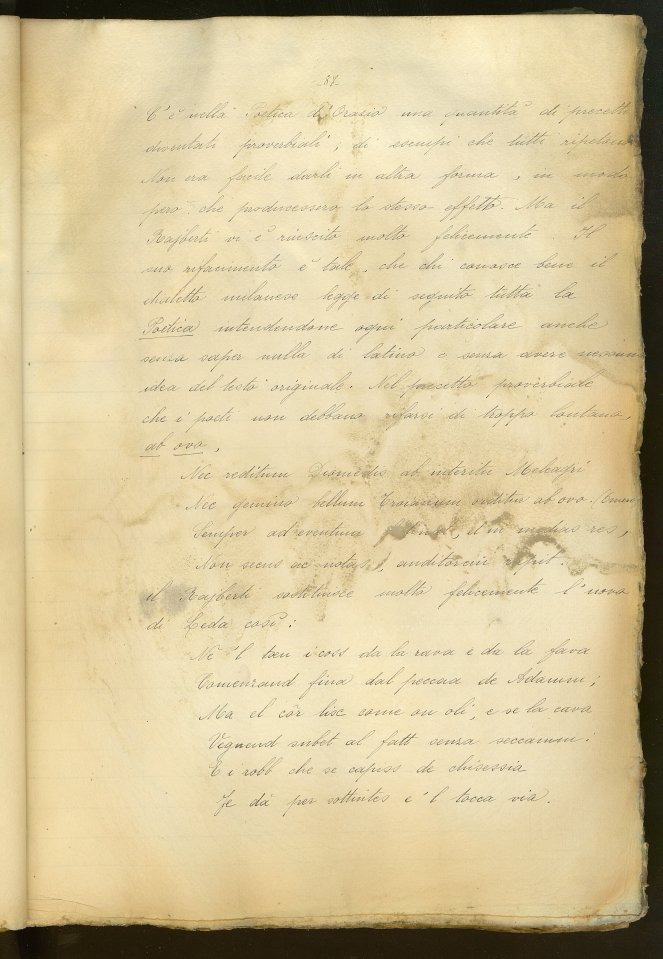 -87-
C'è nella Poetica di Orazio una quantità di precetti
diventati proverbiali, di esempi che tutti ripetono
Non era facile darli in altra forma, in modo
però che producessero lo stesso effetto. Ma il
Rajberti vi è riuscito molto felicemente. Il
suo rifacimento è tale, che chi conosce bene il
dialetto milanese legge di seguito tutta la
Poetica intendendone ogni particolare anche
senza saper nulla di latino e senza avere nessuna
idea del testo originale. Nel precetto proverbiale
che i poeti non debbano rifarsi di troppo lontano,
ab ovo,
Nec reditum Diomedis ab interitu Meleagri
Nec gemino bellum Troianum orditur ab ovo.
Semper ad eventum et in medias res,
Non secus ac notas, auditorem rapit.
il Rajberti sostituisce molto felicemente l'uova
di Leda così:
Nè 'l tœu i coss da la rava e da la fava
Comenzand fina dal peccaa de Adamm;
Ma el côr lisc come on oli, e se la cava
Vegnend subet al fatt senza seccamm.
E i robb che se capiss de chisessia
Je dà per sottintes e 'l tocca via.